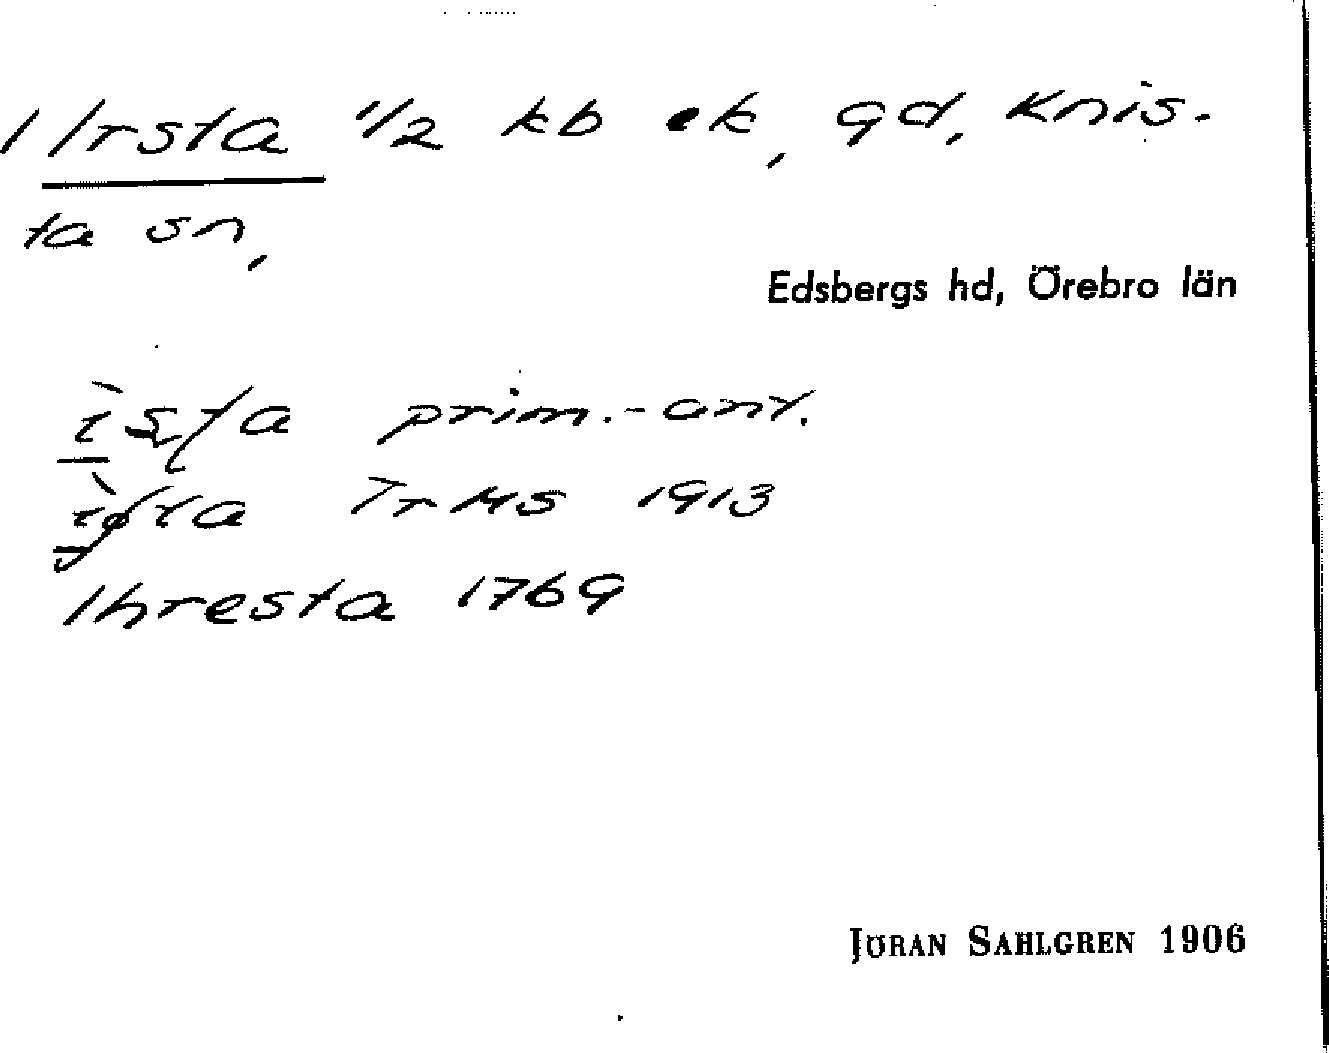 1 Irsta 1/2 kb ek, gd, Knis-
ta sn,
Edsbergs hd, Örebro län
ìsta prim.-ant.
ìsta TrMS 1913
Ihresta 1769
JÖRAN SAHLGREN 1906